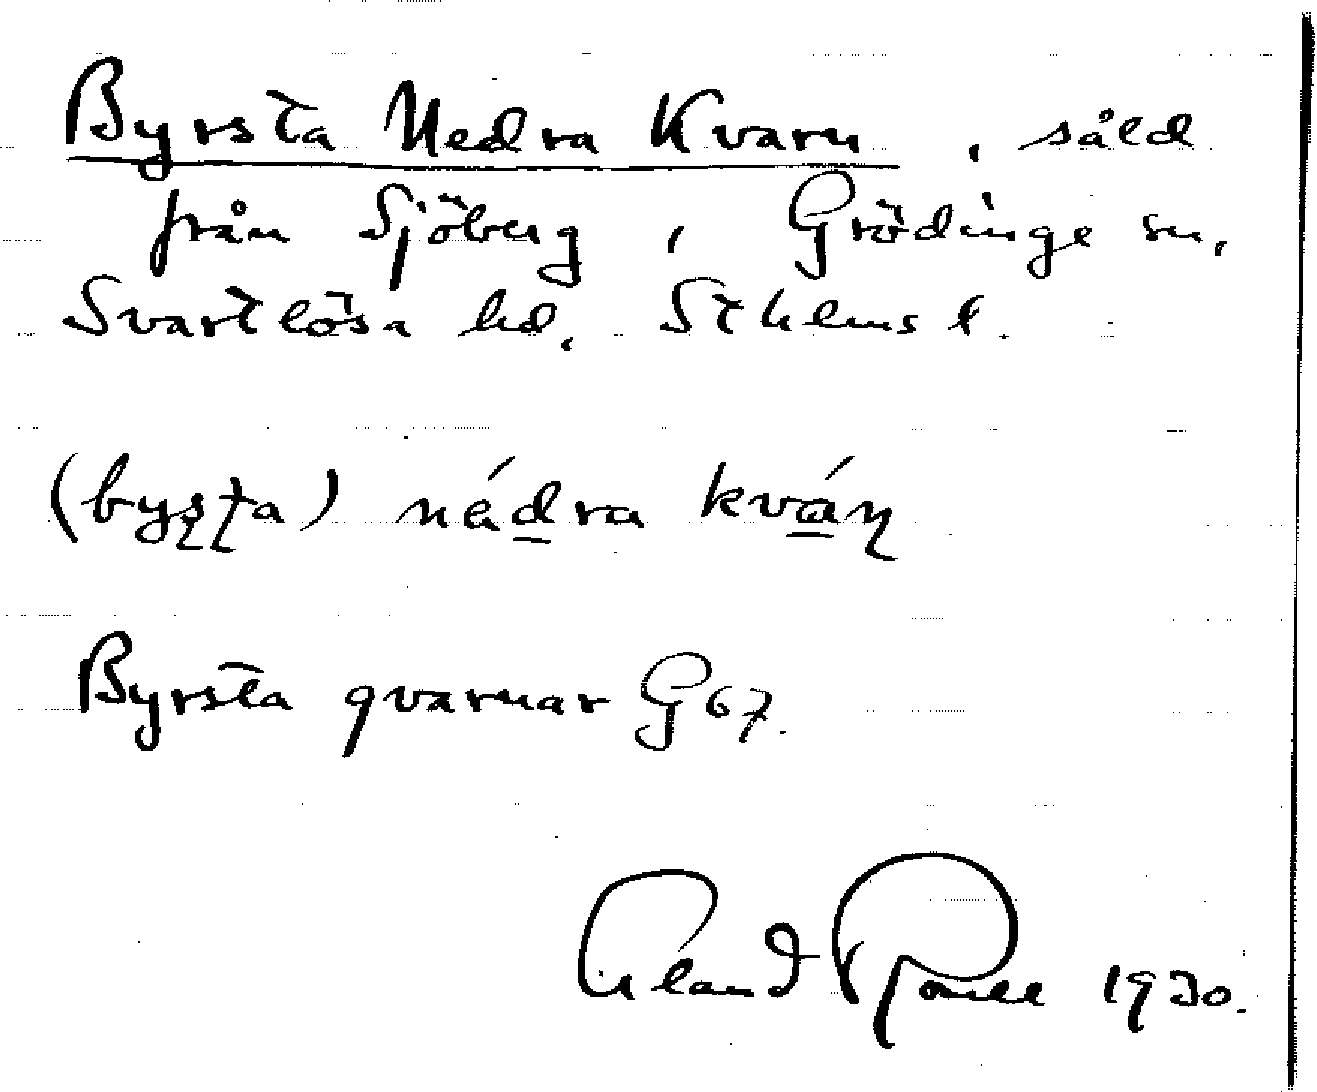 Byrsta Nedra Kvarn, såld
från Sjöberg, Grödinge sn,
Svartlösa hd, Sthlms l.
(byʂʈa) nédra kváɳ
Byrsta qvarnar G 67.
Erland Rosell 1970.